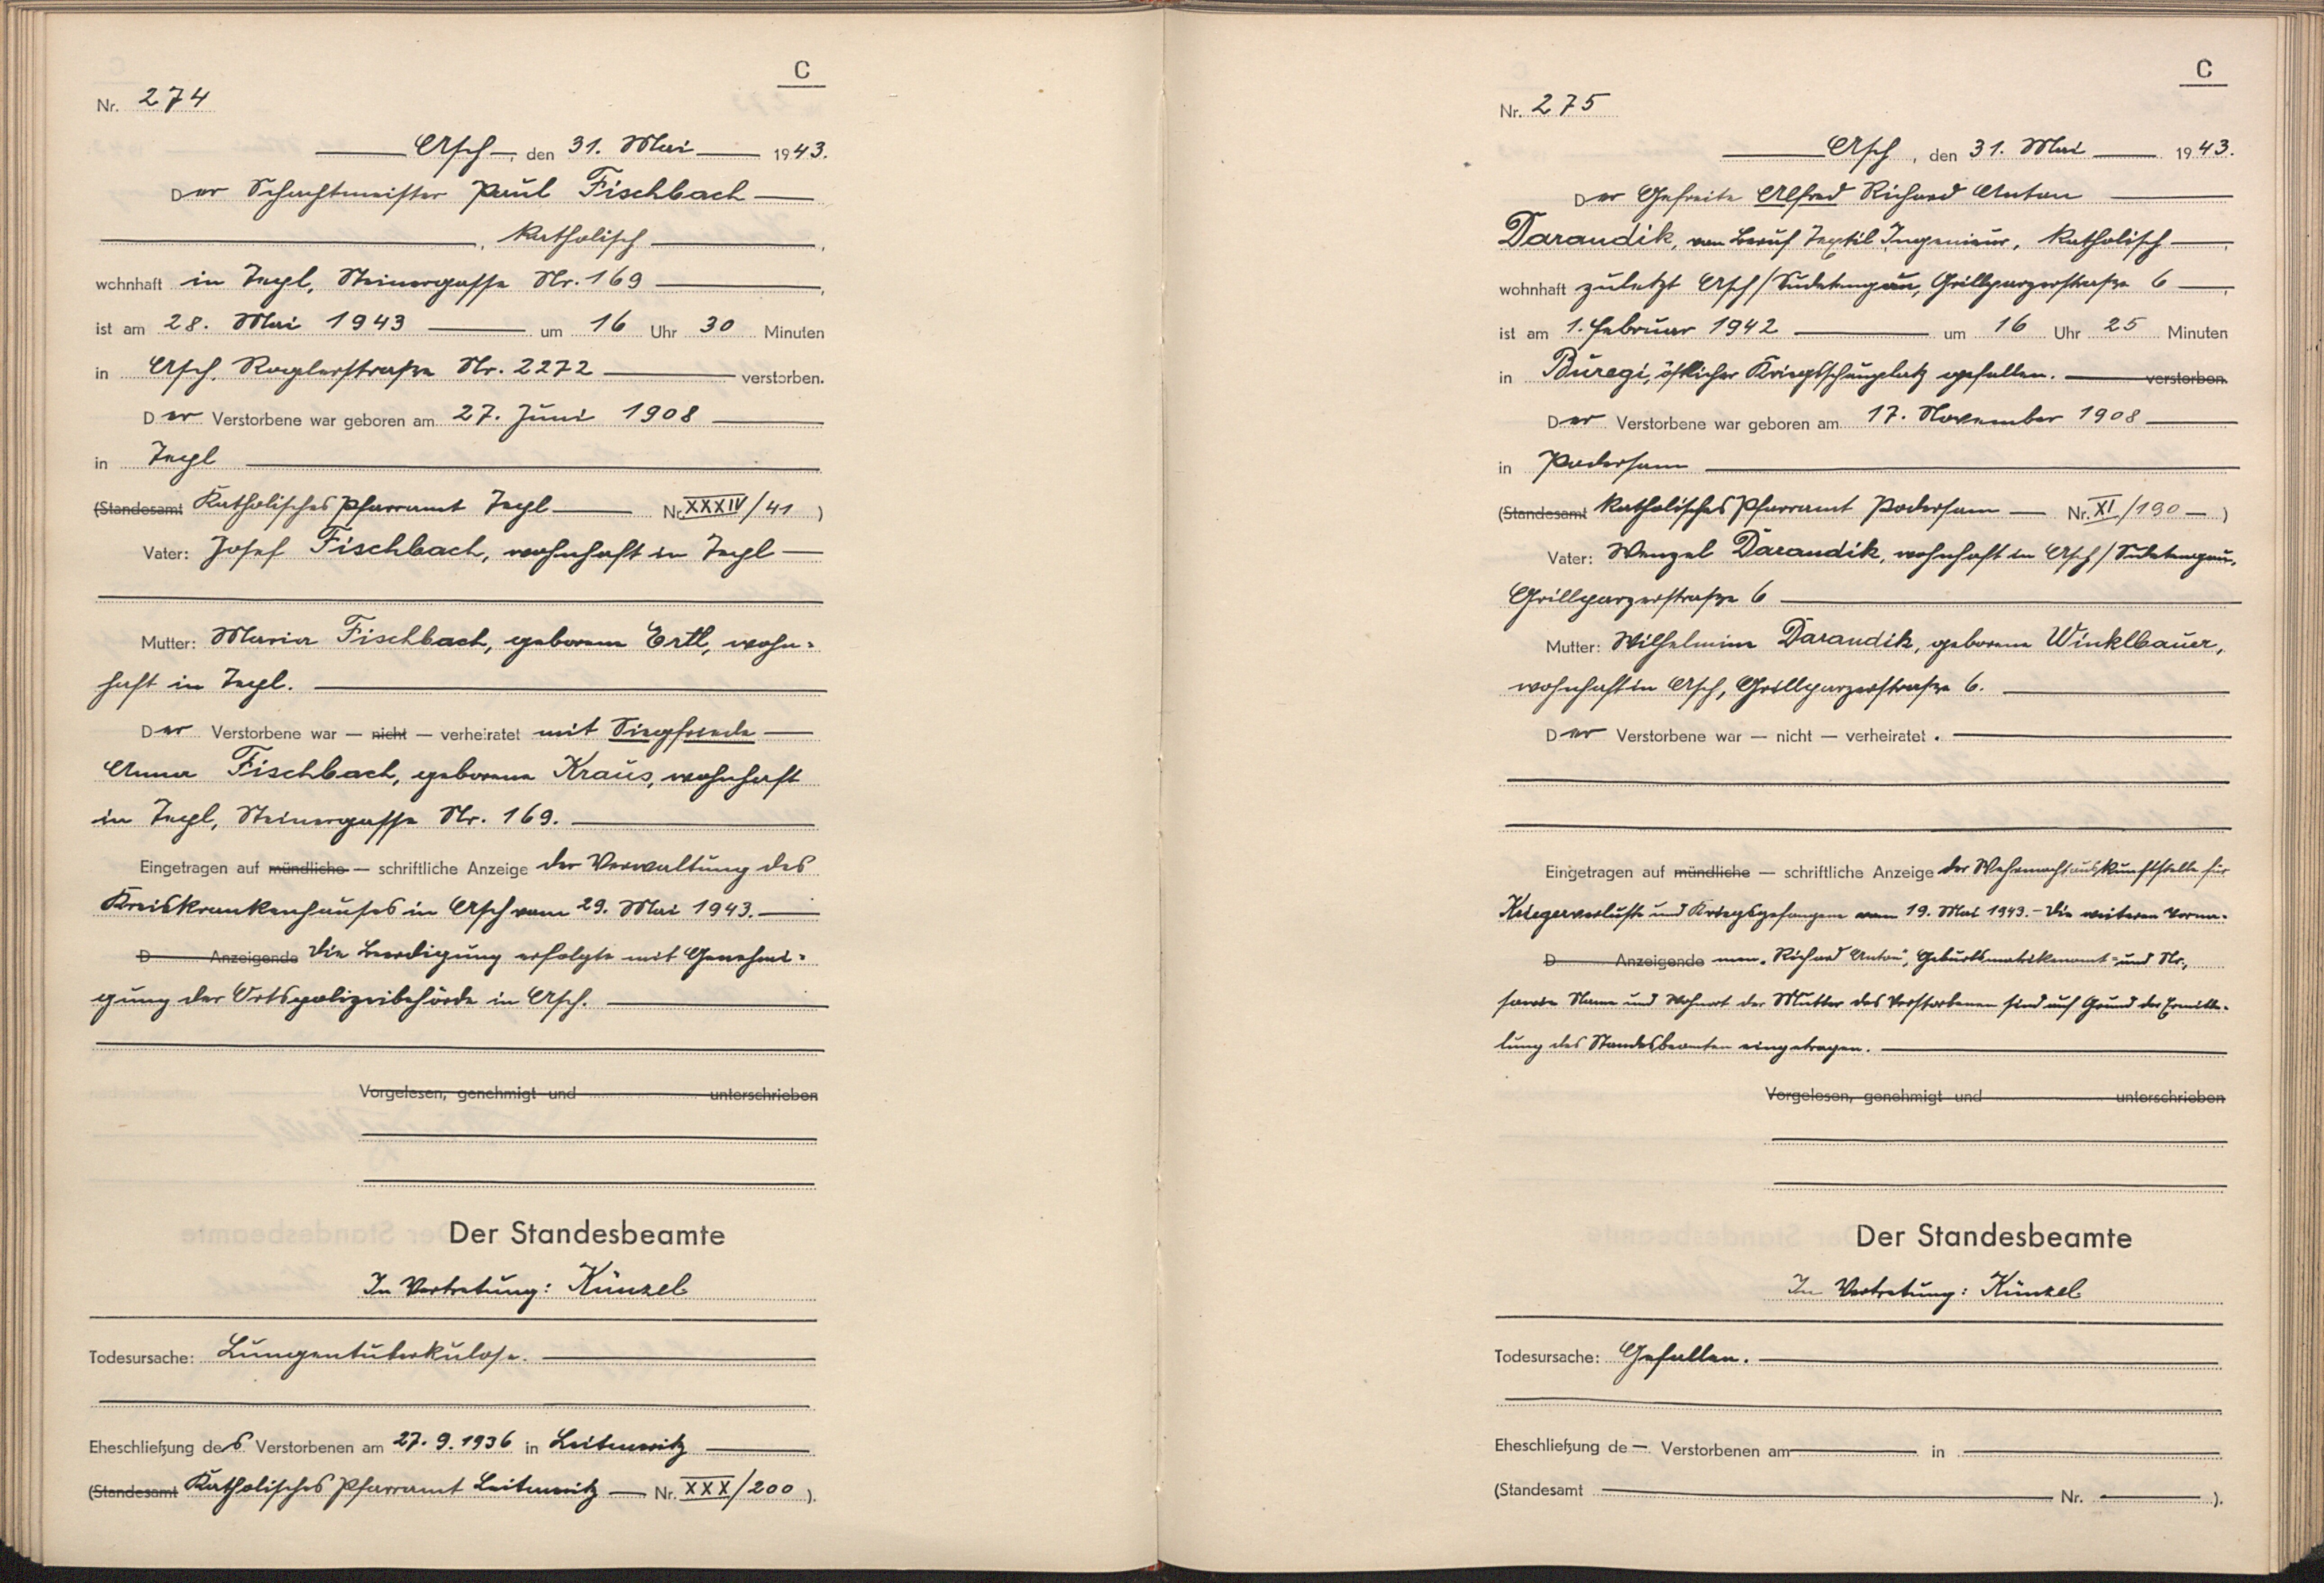 C
Nr. 274
Asch, den 31. Mai 1943.
Der Schachtmeister Paul Fischbach
, katholisch,
wohnhaft in Tepl, Steinergasse Nr. 169,
ist am 28. Mai 1943 um 16 Uhr 30 Minuten
in Asch, Roglerstraße Nr. 2272 verstorben.
Der Verstorbene war geboren am 27. Juni 1908
in Tepl
(Standesamt Katholisches Pfarramt Tepl Nr. XXXIV/41)
Vater: Josef Fischbach, wohnhaft in Tepl
Mutter: Maria Fischbach, geborene Ertl, wohn=
haft in Tepl.
Der Verstorbene war — nicht — verheiratet mit Siegfriede
Anna Fischbach, geborene Kraus, wohnhaft
in Tepl, Steinergasse Nr. 169.
Eingetragen auf mündliche — schriftliche Anzeige der Verwaltung des
Kreiskrankenhauses in Asch vom 29. Mai 1943.
D Anzeigende Die Beerdigung erfolgte mit Genehmi=
gung der Ortspolizeibehörde in Asch.
Vorgelesen, genehmigt und unterschrieben
Der Standesbeamte
In Vertretung: Künzel
Todesursache: Lungentuberkulose.
Eheschließung des Verstorbenen am 27.9.1936 in
(Standesamt Katholisches Pfarramt Nr. XXX/200).
C
Nr. 275
Asch, den 31. Mai 1943.
Der Gefreite Alfred Richard Anton
Darandik, von Beruf Textil Ingenieur, katholisch,
wohnhaft zuletzt Asch/Sudetengau, Grillparzerstraße 6,
ist am 1. Februar 1942 um 16 Uhr 25 Minuten
in Buregi, östlicher Kriegsschauplatz gefallen. verstorben.
Der Verstorbene war geboren am 17. November 1908
in Podersam
(Standesamt Katholisches Pfarramt Podersam Nr. XI/190)
Vater: Wenzel Darandik, wohnhaft in Asch/Sudetengau,
Grillparzerstraße 6
Mutter: Wilhelmine Darandik, geborene Winklbauer,
wohnhaft in Asch, Grillparzerstraße 6.
Der Verstorbene war — nicht — verheiratet.
Eingetragen auf mündliche — schriftliche Anzeige der Wehrmachtauskunftstelle für
Kriegerverluste und Kriegsgefangene vom 19. Mai 1943. - Die weiteren Vorna=
D Anzeigende men „Richard Anton", Geburtsmatrikenamt und Nr.,
sowie Name und Wohnort der Mutter des Verstorbenen sind auf Grund der Ermitte=
lung des Standesbeamten eingetragen.
Vorgelesen, genehmigt und unterschrieben
Der Standesbeamte
In Vertretung: Künzel
Todesursache: Gefallen.
Eheschließung de Verstorbenen am in
(Standesamt Nr. ).